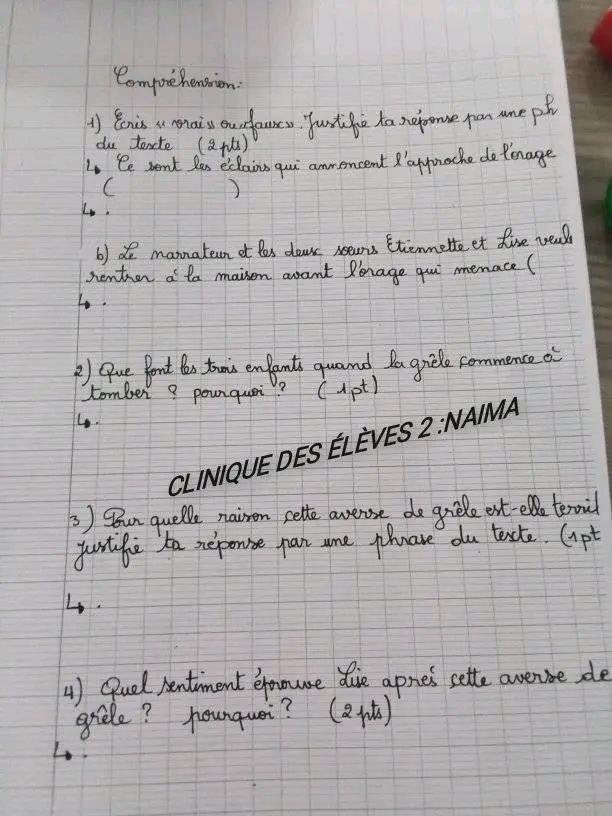 Compréhension:
1) Ecris « vrai » ou « faux ». Justifie ta réponse par une ph
du texte (2 pts)
↳ Ce sont les éclairs qui annoncent l'approche de l'orage
( )
↳.
b) Le narrateur et les deux sœurs Etiennette et Lise veule
rentrer à la maison avant l'orage qui menace (
↳.
2) Que font les trois enfants quand la grêle commence à
tomber ? pourquoi ? (1pt)
↳.
CLINIQUE DES ÉLÈVES 2 :NAIMA
3) Pour quelle raison cette averse de grêle est-elle terribl
justifie ta réponse par une phrase du texte. (1pt
↳.
4) Quel sentiment éprouve Lise après cette averse de
grêle ? pourquoi ? (2 pts)
↳.